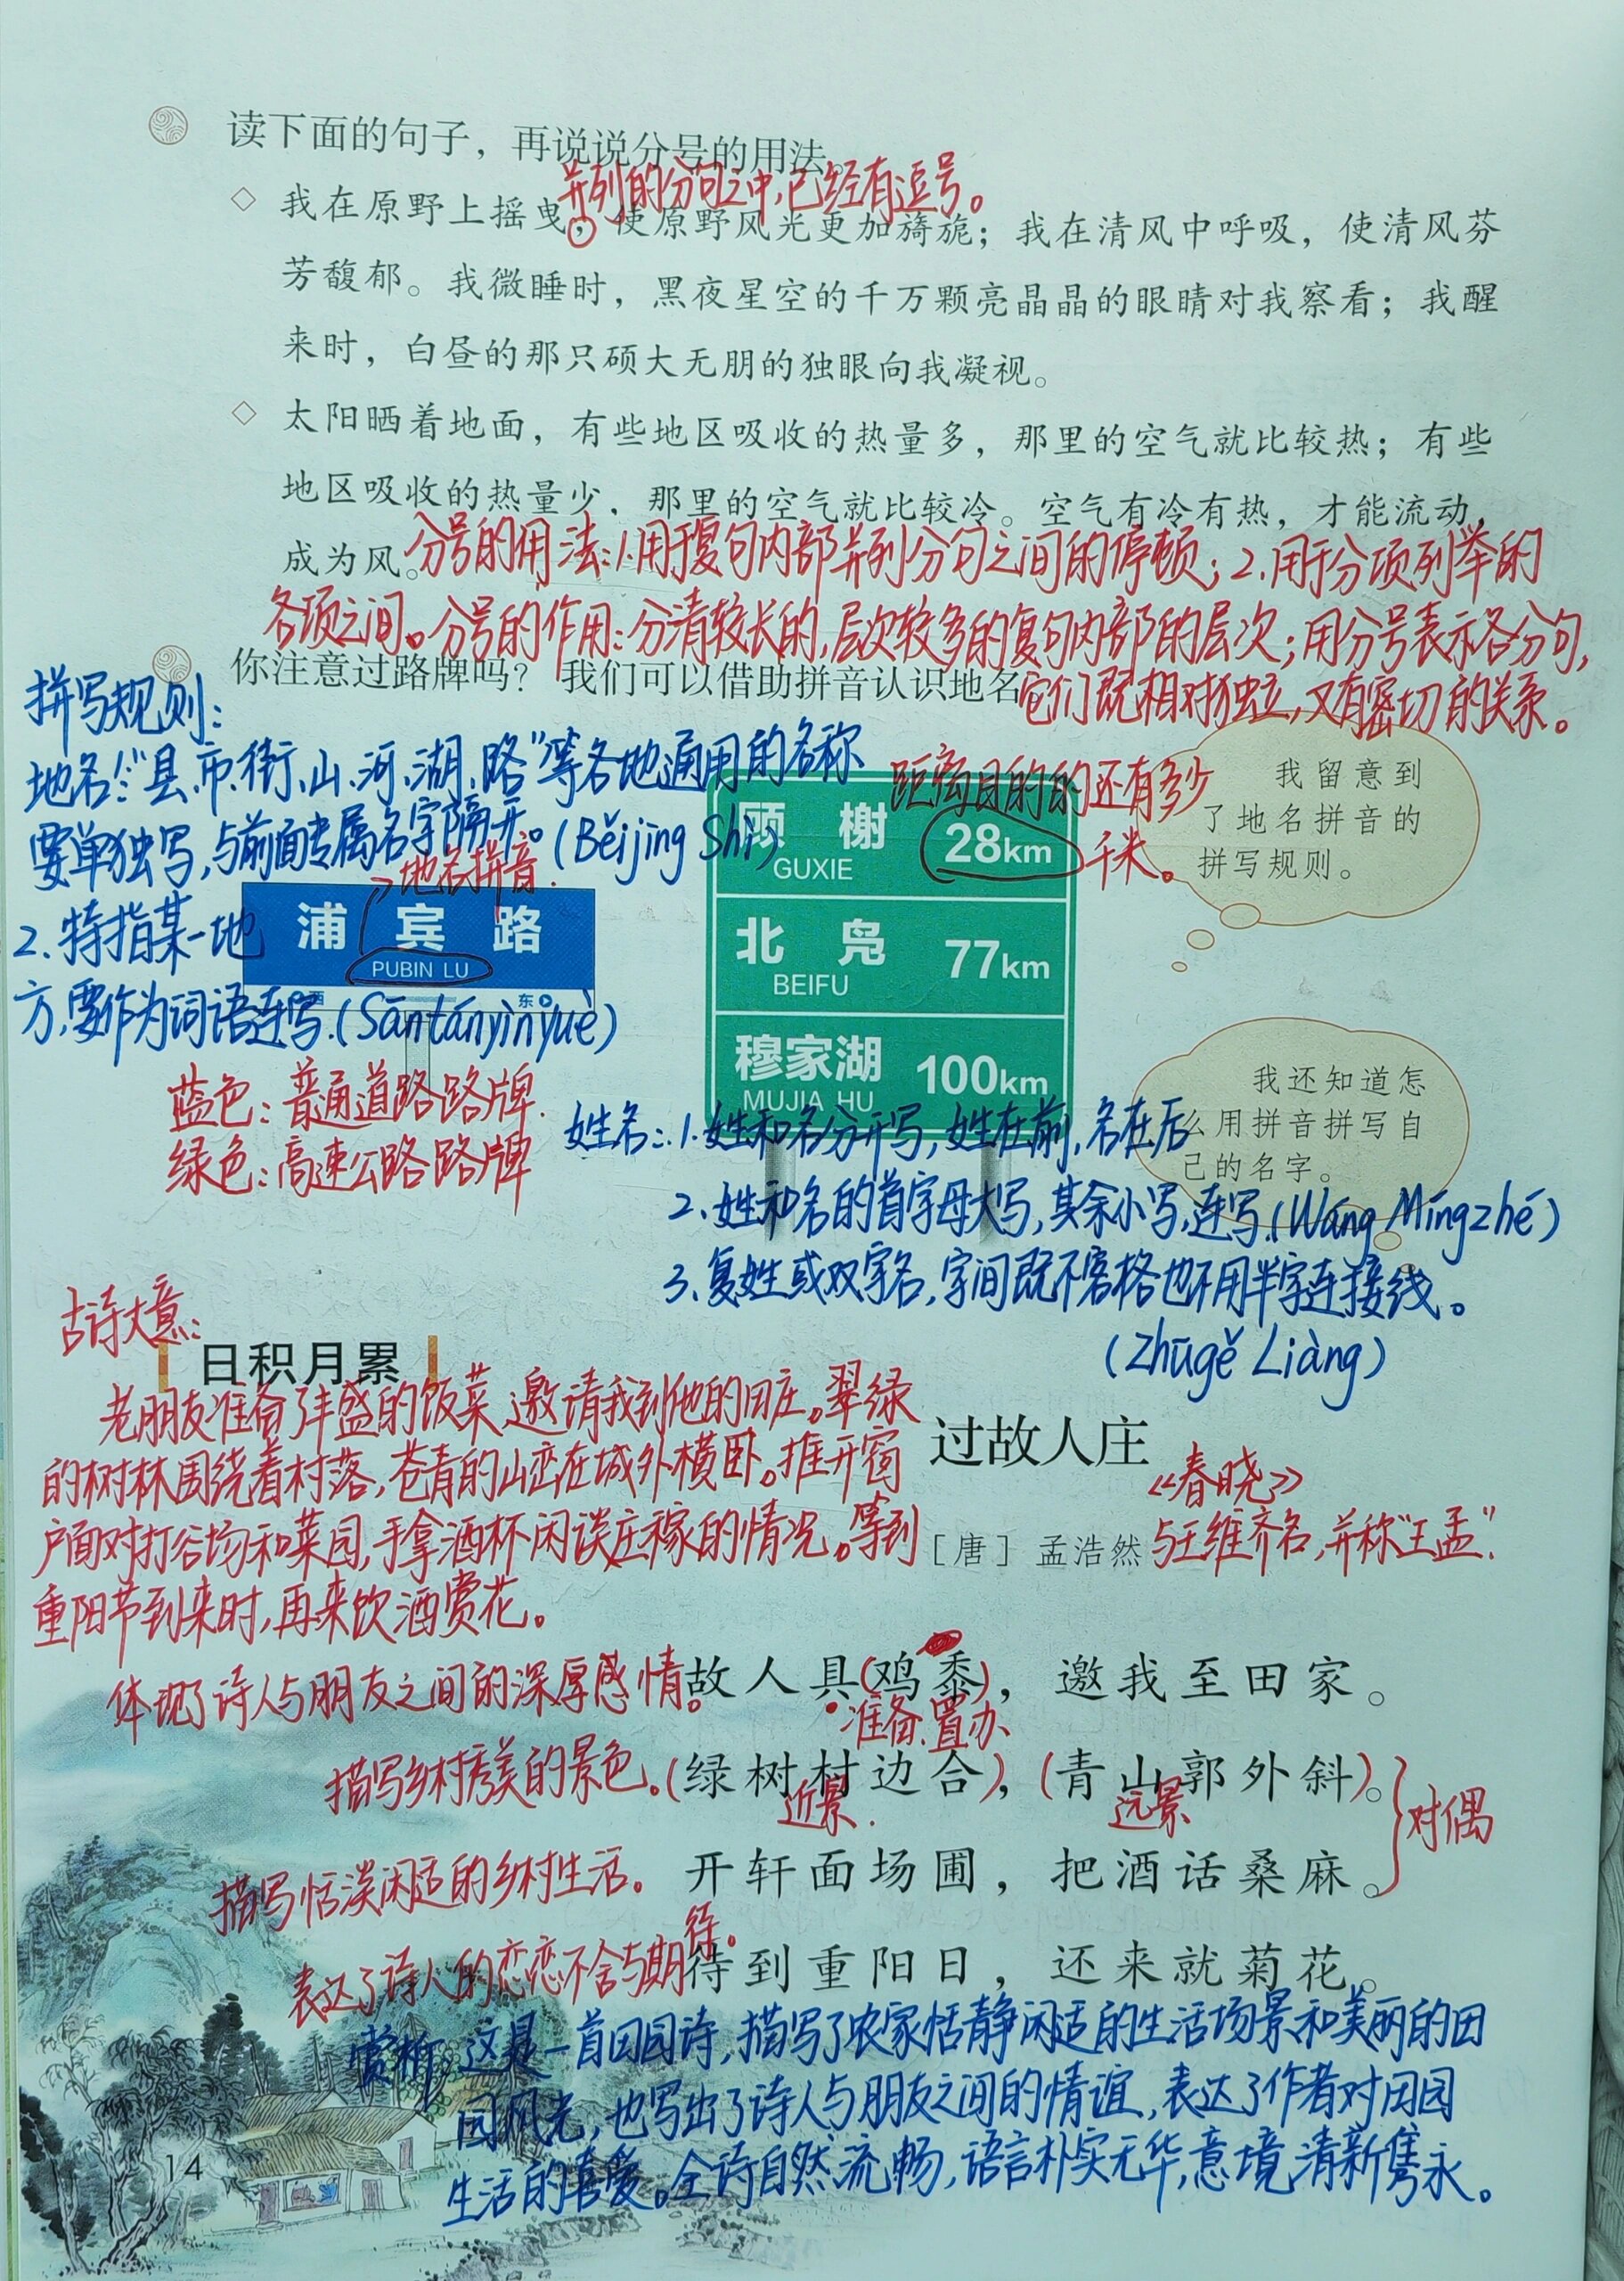 读下面的句子，再说说分号的用法。
并列的分句之中，已经有逗号。
我在原野上摇曳，使原野风光更加旖旎；我在清风中呼吸，使清风芬
芳馥郁。我微睡时，黑夜星空的千万颗亮晶晶的眼睛对我察看；我醒
来时，白昼的那只硕大无朋的独眼向我凝视。
太阳晒着地面，有些地区吸收的热量多，那里的空气就比较热；有些
地区吸收的热量少，那里的空气就比较冷。空气有冷有热，才能流动，
成为风。
分号的用法：1.用于复句内部并列分句之间的停顿；2.用于分项列举的
各项之间。分号的作用：分清较长的，层次较多的复句内部的层次；用分号表示各分句，
它们既相对独立，又有密切的关系。
你注意过路牌吗？我们可以借助拼音认识地名
拼写规则：
地名：“县、市、街、山、河、湖、路”等各地通用的名称
要单独写，与前面专属名字隔开。(Běijīng Shì)
2.特指某一地
方，要作为词语连写.(Sāntányìnyuè)
地名拼音.
浦宾路
PUBIN LU
西
东
蓝色：普通道路路牌.
绿色：高速公路路牌
距离目的的还有多少
千米。
顾榭 28km
GUXIE
北凫 77km
BEIFU
穆家湖 100km
MUJIA HU
我留意到
了地名拼音的
拼写规则。
我还知道怎
么用拼音拼写自
己的名字。
姓名：1.姓和名分开写，姓在前，名在后
2、姓和名的首字母大写，其余小写，连写.(Wáng Míngzhé)
3、复姓或双字名，字间既不空格也不用半字连接线。
(Zhūgě Liàng)
日积月累
古诗大意：
老朋友准备了丰盛的饭菜，邀请我到他的田庄。翠绿
的树林围绕着村落，苍青的山峦在城外横卧。推开窗
户面对打谷场和菜园，手拿酒杯闲谈庄稼的情况。等到
重阳节到来时，再来饮酒赏花。
过故人庄
《春晓》
［唐］孟浩然
与王维齐名，并称“王孟”.
体现了诗人与朋友之间的深厚感情。
故人具(鸡黍)，邀我至田家。
准备、置办
描写乡村秀美的景色。
(绿树村边合)，(青山郭外斜)。
近景.
远景
对偶
描写恬淡闲适的乡村生活。
开轩面场圃，把酒话桑麻。
表达了诗人的恋恋不舍与期待。
待到重阳日，还来就菊花。
赏析：这是一首田园诗，描写了农家恬静闲适的生活场景和美丽的田
园风光，也写出了诗人与朋友之间的情谊，表达了作者对田园
生活的喜爱。全诗自然流畅，语言朴实无华，意境清新隽永。
14